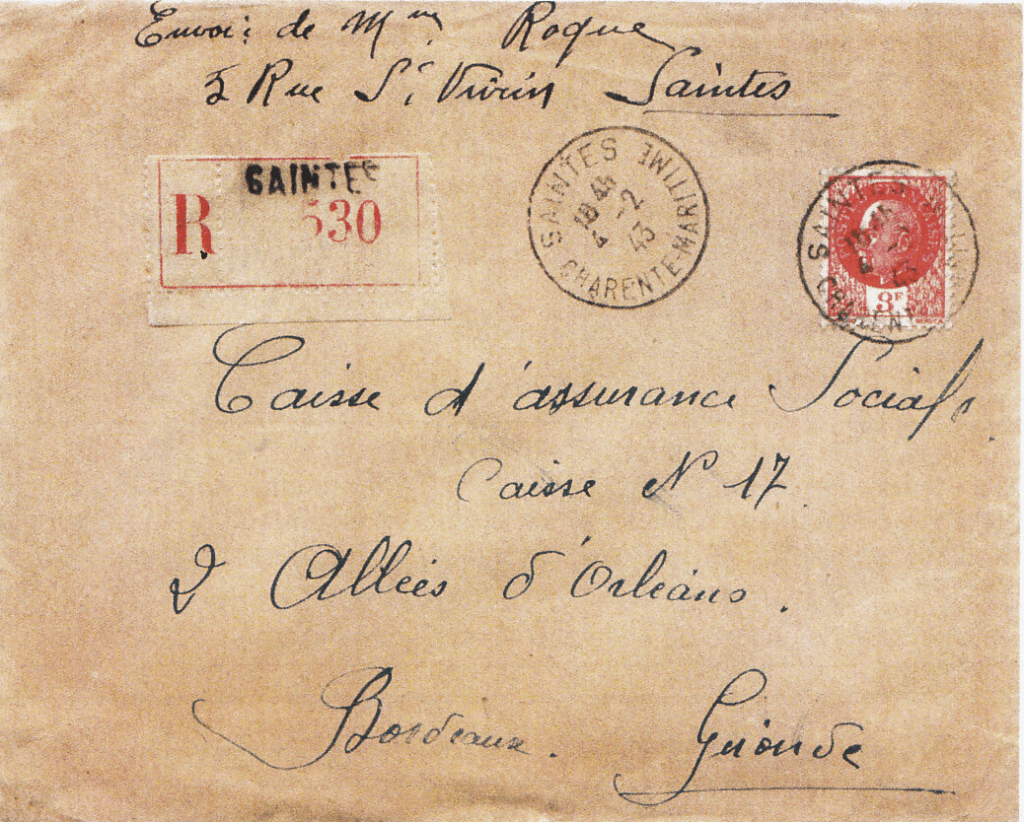 Envoi: de Mme Roque
5 Rue St Vivien Saintes
SAINTES
R 530
SAINTES CHARENTE-MARITIME
18 44
4 -2
43
SAINTES
3F
Caisse d'assurance Sociale
Caisse N 17
2 Allées d'Orléans.
Bordeaux. Gironde